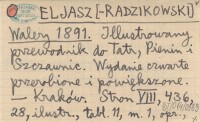 ELJASZ [-RADZIKOWSKI]
Walery 1891. Illustrowany
przewodnik do Tatr, Pienin i
Szczawnic. Wydanie czwarte
przerobione i powiększone.
— Kraków. Stron VIII, 436,
28, illustr., tabl. 11, m. 1, opr.,